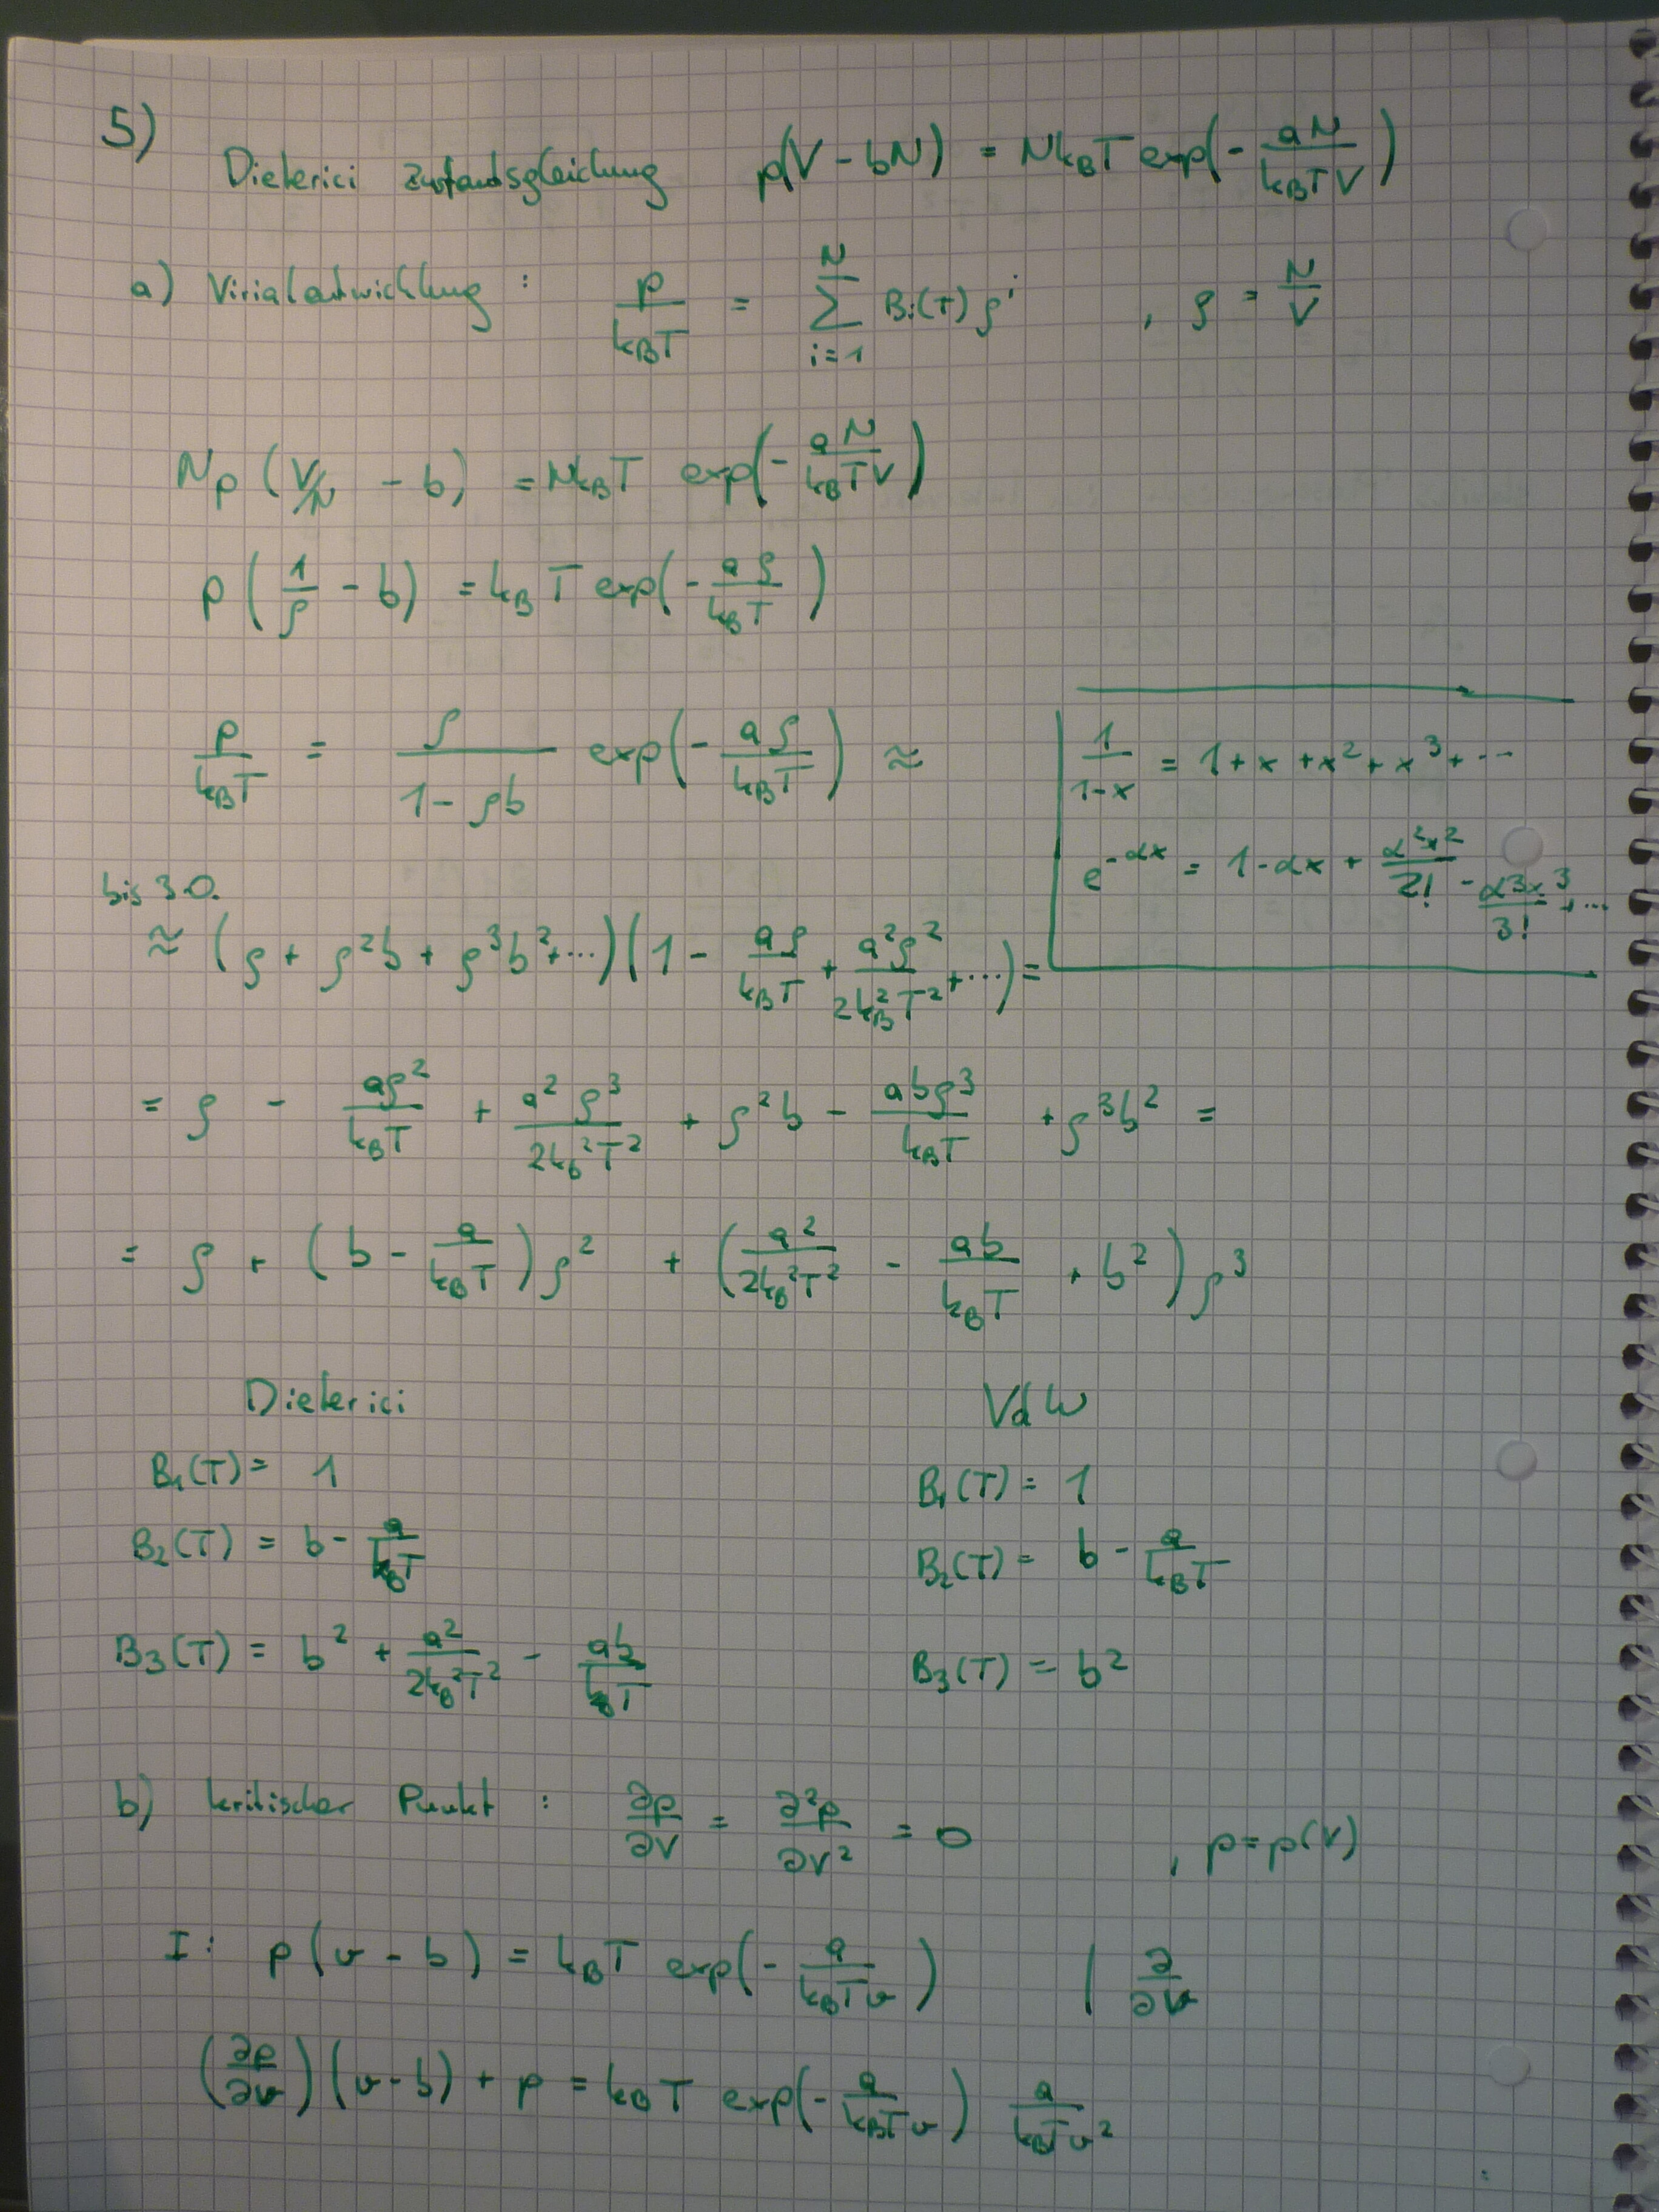 5)
Dieterici Zustandsgleichung p(V - bN) = Nk_BT exp(- aN/(k_BTV))
a) Virialentwicklung : p/(k_BT) = ∑_{i=1}^{N} B_i(T) ρ^i , ρ = N/V
Np (V/N - b) = Nk_BT exp(- aN/(k_BTV))
p (1/ρ - b) = k_BT exp(- aρ/(k_BT))
p/(k_BT) = ρ/(1 - ρb) exp(- aρ/(k_BT)) ≈
1/(1-x) = 1 + x + x² + x³ + ...
e^{-αx} = 1 - αx + α²x²/2! - α³x³/3! + ...
bis 3.O.
≈ (ρ + ρ²b + ρ³b² + ...)(1 - aρ/(k_BT) + a²ρ²/(2k_B²T²) + ...) =
= ρ - aρ²/(k_BT) + a²ρ³/(2k_B²T²) + ρ²b - abρ³/(k_BT) + ρ³b² =
= ρ + (b - a/(k_BT))ρ² + (a²/(2k_B²T²) - ab/(k_BT) + b²)ρ³
Dieterici VdW
B₁(T) = 1 B₁(T) = 1
B₂(T) = b - a/(k_BT) B₂(T) = b - a/(k_BT)
B₃(T) = b² + a²/(2k_B²T²) - ab/(k_BT) B₃(T) = b²
b) kritischer Punkt : ∂p/∂v = ∂²p/∂v² = 0 , p = p(v)
I: p(v - b) = k_BT exp(- a/(k_BTv)) | ∂/∂v
(∂p/∂v)(v - b) + p = k_BT exp(- a/(k_BTv)) a/(k_BTv²)